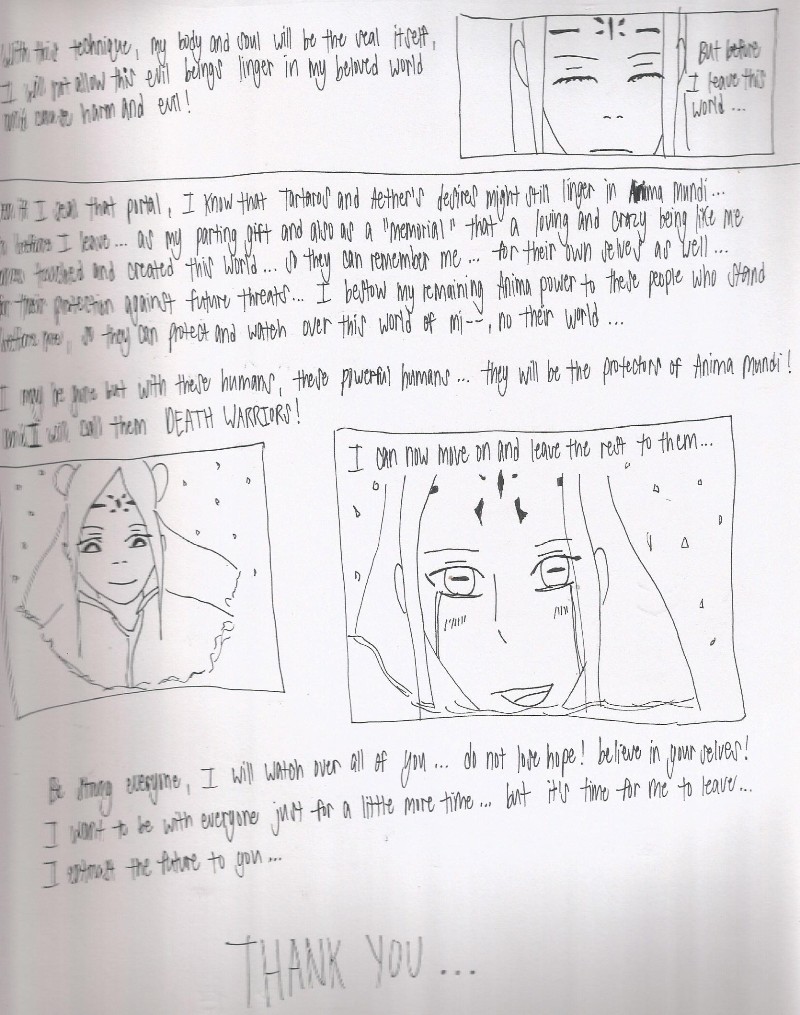 With this technique, my body and soul will be the seal itself,
I will not allow this evil beings linger in my beloved world
and cause harm and evil!
But before
I leave this
world...
I seal that portal, I know that Tartaros and Aether's desires might still linger in Anima Mundi...
before I leave... as my parting gift and also as a "memorial" that a loving and crazy being like me
touched and created this world... so they can remember me... for their own selves as well...
for their protection against future threats... I bestow my remaining Anima power to these people who stand
before me, so they can protect and watch over this world of mi--, no their world...
I may be gone but with these humans, these powerful humans... they will be the protectors of Anima Mundi!
and I will call them DEATH WARRIORS!
I can now move on and leave the rest to them...
Be strong everyone, I will watch over all of you... do not lose hope! believe in your selves!
I want to be with everyone just for a little more time... but it's time for me to leave...
I entrust the future to you...
THANK YOU...